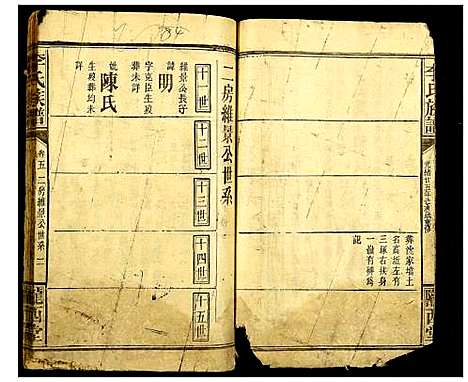 李氏族譜
葬沈家壋土
名高坵左有
三塚右扶身
一塚有碑為
記
隴西堂
二房維景公世系
十一世
十二世
十三世
十四世
十五世
維景公長子
諱明
字克臣生歿
葬均未詳
妣陳氏
生歿葬均未
詳
李氏族譜
卷五二房維景公世系
二
隴西堂